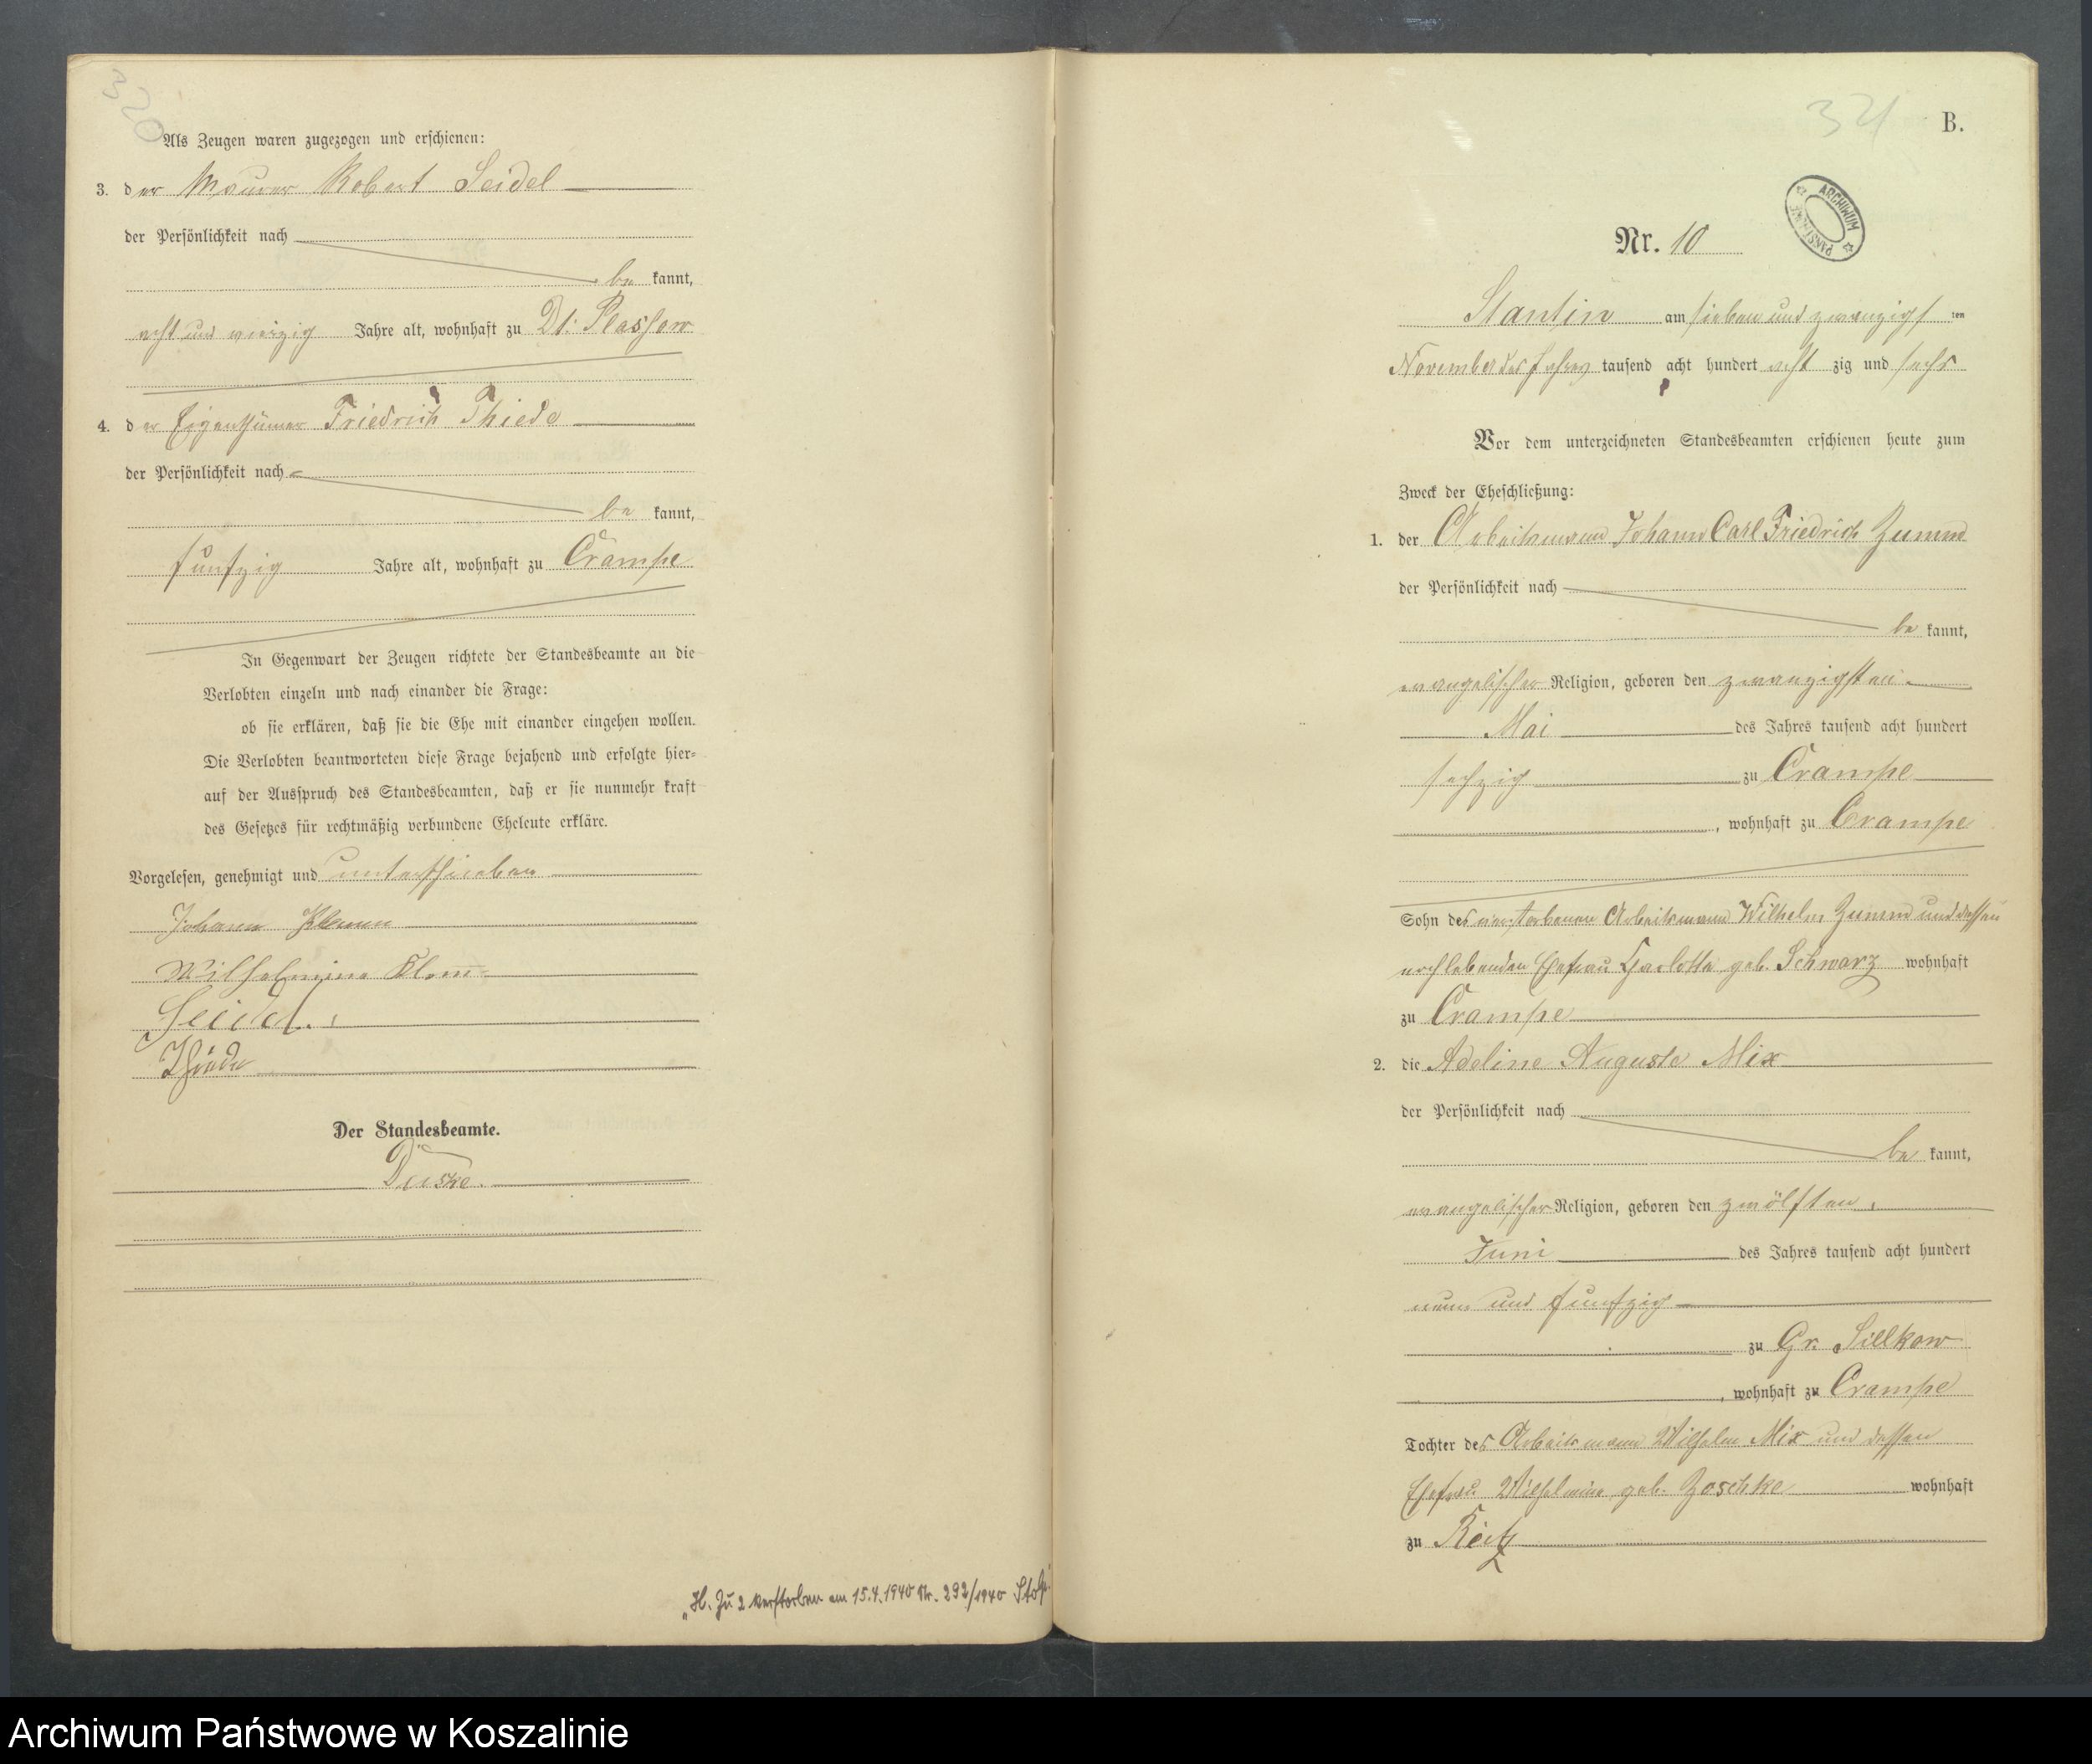 320
Als Zeugen waren zugezogen und erschienen:
3. der Maurer Robert Seidel
der Persönlichkeit nach
be kannt,
acht und vierzig Jahre alt, wohnhaft zu Dt. Plassow
4. der Eigenthümer Friedrich Thiede
der Persönlichkeit nach
be kannt,
fünfzig Jahre alt, wohnhaft zu Crampe
In Gegenwart der Zeugen richtete der Standesbeamte an die
Verlobten einzeln und nach einander die Frage:
ob sie erklären, daß sie die Ehe mit einander eingehen wollen.
Die Verlobten beantworteten diese Frage bejahend und erfolgte hier-
auf der Ausspruch des Standesbeamten, daß er sie nunmehr kraft
des Gesetzes für rechtmäßig verbundene Eheleute erkläre.
Vorgelesen, genehmigt und unterschrieben
Johann
Wilhelmine
Seidel.
Thiede
Der Standesbeamte.
"H. Zu 2 verstorben am 15.4.1940 Nr. 292/1940 Stolp"
321
B.
ARCHIWUM PAŃSTWOWE
Nr. 10
Stantin am sieben und zwanzigsten
November des Jahres tausend acht hundert acht zig und sechs
Vor dem unterzeichneten Standesbeamten erschienen heute zum
Zweck der Eheschließung:
1. der Arbeitsmann Johann Carl Friedrich Zumm
der Persönlichkeit nach
be kannt,
evangelischer Religion, geboren den zwanzigsten
Mai des Jahres tausend acht hundert
sechzig zu Crampe
, wohnhaft zu Crampe
Sohn des verstorbenen Arbeitsmann Wilhelm Zumm und dessen
noch lebenden Ehefrau Charlotte geb. Schwarz wohnhaft
zu Crampe
2. die Adeline Auguste Mix
der Persönlichkeit nach
be kannt,
evangelischer Religion, geboren den zwölften
Juni des Jahres tausend acht hundert
neun und fünfzig
zu Gr. Silkow
, wohnhaft zu Crampe
Tochter des Arbeitsmann Wilhelm Mix und dessen
Ehefrau Wilhelmine geb. Zoschke wohnhaft
zu Reitz
Archiwum Państwowe w Koszalinie